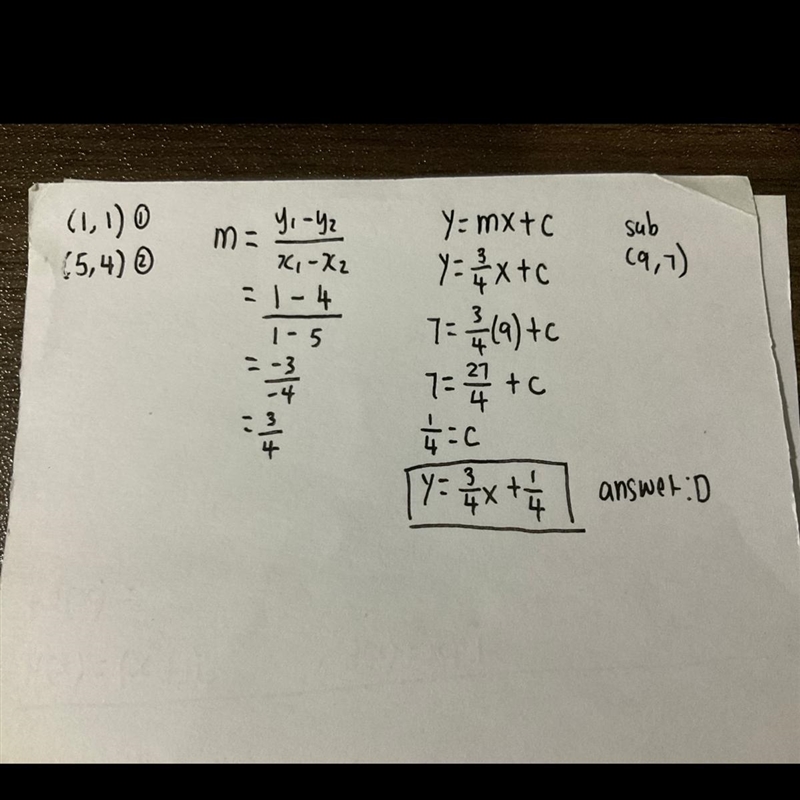 (1, 1) ①
(5, 4) ②
m = y₁ - y₂ / x₁ - x₂
= 1 - 4 / 1 - 5
= -3 / -4
= 3/4
y = mx + c
y = 3/4 x + c
7 = 3/4 (9) + c
7 = 27/4 + c
1/4 = c
y = 3/4 x + 1/4
sub
(9, 7)
answer: D